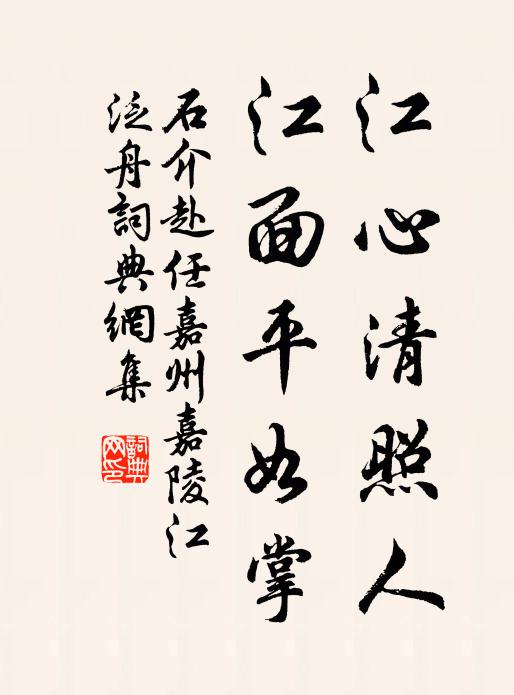 江心清照人
江面平如掌
石介赴任嘉州嘉陵江
泛舟詞典網集
詞典
网印